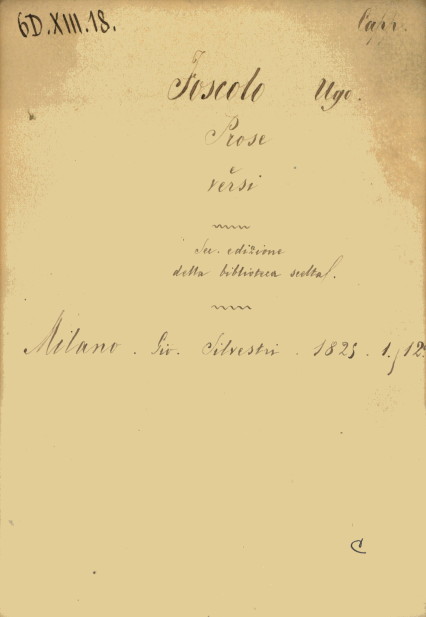 6D.XIII.18.
Capp.
Foscolo Ugo.
Prose
e
versi
Sec. edizione
della biblioteca scelta.
Milano. Gio. Silvestri. 1825. 1. 12.
C